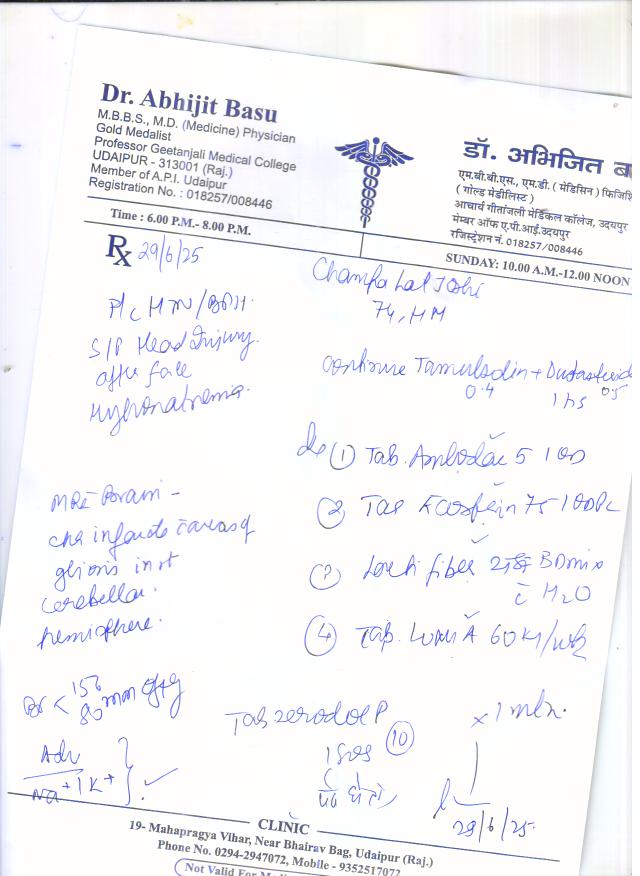 Dr. Abhijit Basu
M.B.B.S., M.D. (Medicine) Physician
Gold Medalist
Professor Geetanjali Medical College
UDAIPUR - 313001 (Raj.)
Member of A.P.I. Udaipur
Registration No. : 018257/008446
डॉ. अभिजित ब
एम.बी.बी.एस., एम.डी. ( मेडिसिन ) फिजिशि
( गोल्ड मेडीलिस्ट )
आचार्य गीतांजली मेडिकल कॉलेज, उदयपुर
मेम्बर ऑफ ए.पी.आई.उदयपुर
रजिस्ट्रेशन नं. 018257/008446
Time : 6.00 P.M.- 8.00 P.M.
SUNDAY: 10.00 A.M.-12.00 NOON
Rx 29/6/25
Champa Lal Joshi
74, HM
HTN/BPH.
S/P Head Injury
after fall
Hyponatremia.
continue Tamulsolin +
0.4 1 hs 0.5
① Tab. Amlodac 5 1 OD
② Tab Ecosprin 75 1 OD PC
③ fiber BD mix
c̄ H2O
④ Tab. 60K1/wk
MRI Brain -
chr infarcts c̄ areas of
gliosis in rt
cerebellar
hemisphere.
BP < 150
80 mm of Hg
Tab zerodol P ⑩
1 SOS
x 1 mth.
Adv
Na+ / K+
29/6/25.
CLINIC
19- Mahapragya Vihar, Near Bhairav Bag, Udaipur (Raj.)
Phone No. 0294-2947072, Mobile - 9352517072
Not Valid For